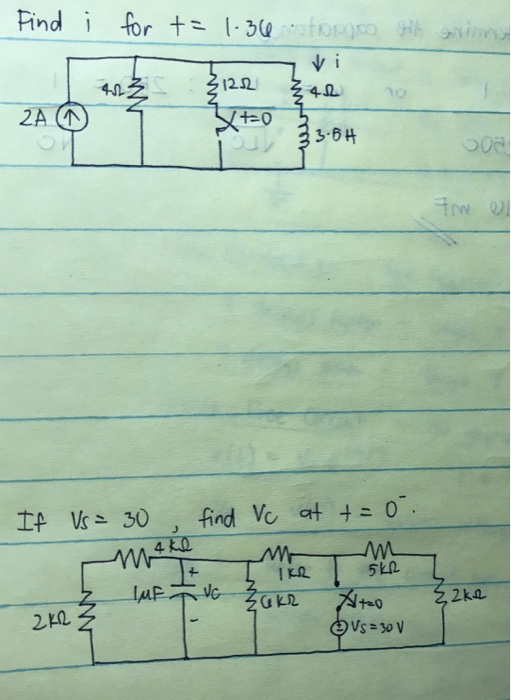 Find i for t = 1.36
↓ i
4Ω
12Ω
4Ω
2A
t=0
If Vs = 30 , find Vc at t = 0⁻.
4 kΩ
+
1kΩ
5kΩ
1μF
Vc
6kΩ
t=0
2kΩ
2kΩ
-
Vs = 30 V